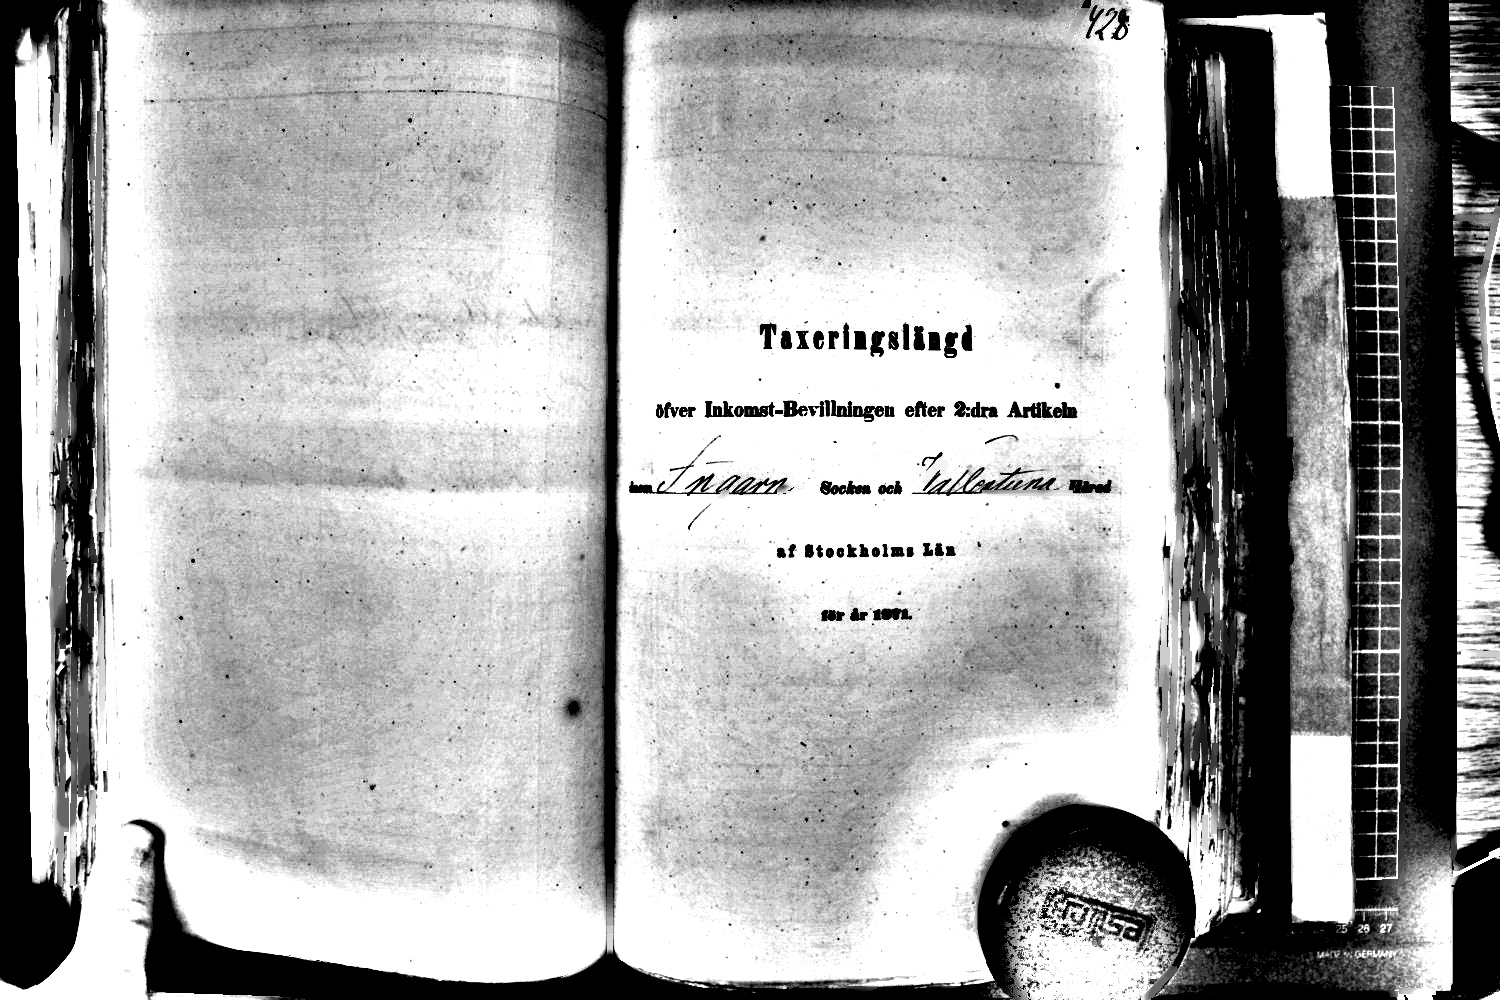 428
Taxeringslängd
öfver Inkomst-Bevillningen efter 2:dra Artikeln
inom Ingarn Socken och Vallentuna Härad
af Stockholms Län
för år 1871.
26 27
MADE IN GERMANY